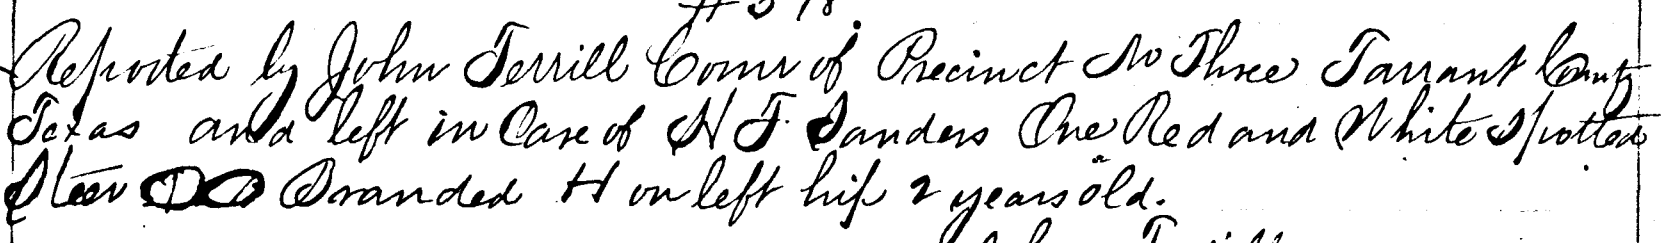 Reported by John Terrill Comr of Precinct No Three Tarrant County
Texas and left in Care of H F. Sanders One Red and White Spotted
Steer Branded H on left hip 2 years old.